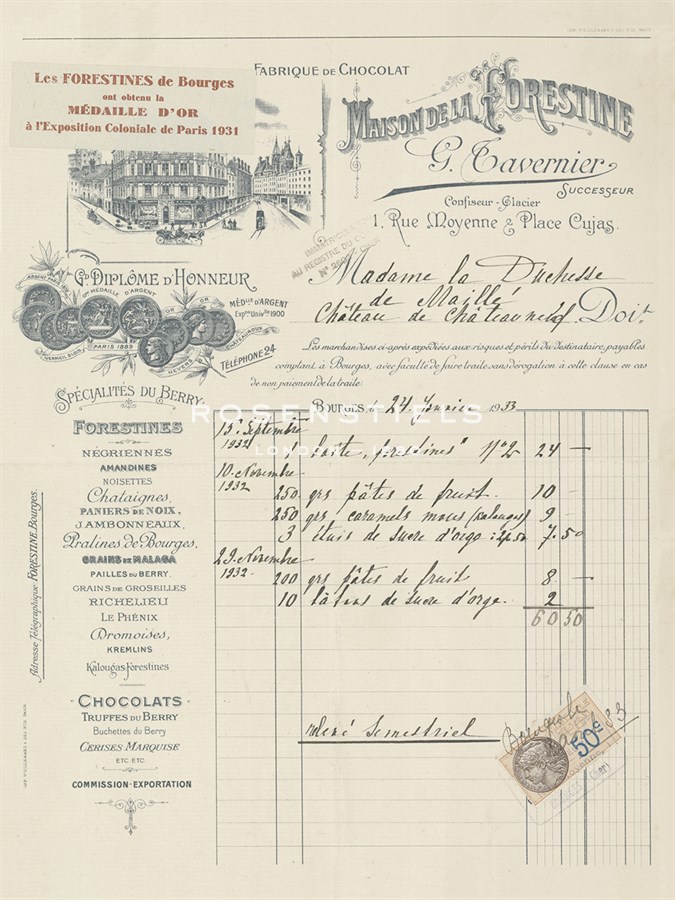 Les FORESTINES de Bourges
ont obtenu la
MÉDAILLE D'OR
à l'Exposition Coloniale de Paris 1931
FABRIQUE DE CHOCOLAT
MAISON DE LA FORESTINE
G. Tavernier
SUCCESSEUR
Confiseur - Glacier
1, Rue Moyenne & Place Cujas.
AU REGISTRE DU
Gd DIPLÔME D'HONNEUR
MÉDAILLE D'ARGENT
MÉDlle D'ARGENT
Expon Univlle 1900
PARIS 1889
NEVERS
TÉLÉPHONE 24
Madame la Duchesse
de Maillé
Château de Châteauneuf. Doit
Les marchandises ci-après expédiées aux risques et périls du destinataire, payables
comptant à Bourges, avec faculté de faire traite sans dérogation à cette clause en cas
de non paiement de la traite.
BOURGES, le 24 février 1933
SPÉCIALITÉS DU BERRY
FORESTINES
NÉGRIENNES
AMANDINES
NOISETTES
Chataignes,
PANIERS DE NOIX,
JAMBONNEAUX,
Pralines de Bourges,
GRAINS DE MALAGA
PAILLES DU BERRY,
GRAINS DE GROSEILLES
RICHELIEU
LE PHÉNIX
Dromoises,
KREMLINS
Kalougas Forestines
CHOCOLATS
TRUFFES DU BERRY
Buchettes du Berry
CERISES MARQUISE
ETC. ETC.
COMMISSION-EXPORTATION
Adresse Télégraphique: FORESTINE, Bourges.
15 Septembre
1932 1 boîte "forestines" No 2 24 —
10 Novembre
1932 250 grs pâtes de fruit. 10 —
250 grs caramels mous (Kalougas) 9 —
3 étuis de sucre d'orge : 2.50 7.50
29 Novembre
1932 200 grs pâtes de fruit 8 —
10 bâtons de sucre d'orge. 2
60 50
relevé Semestriel
50c
ROSENSTIELS
LONDON